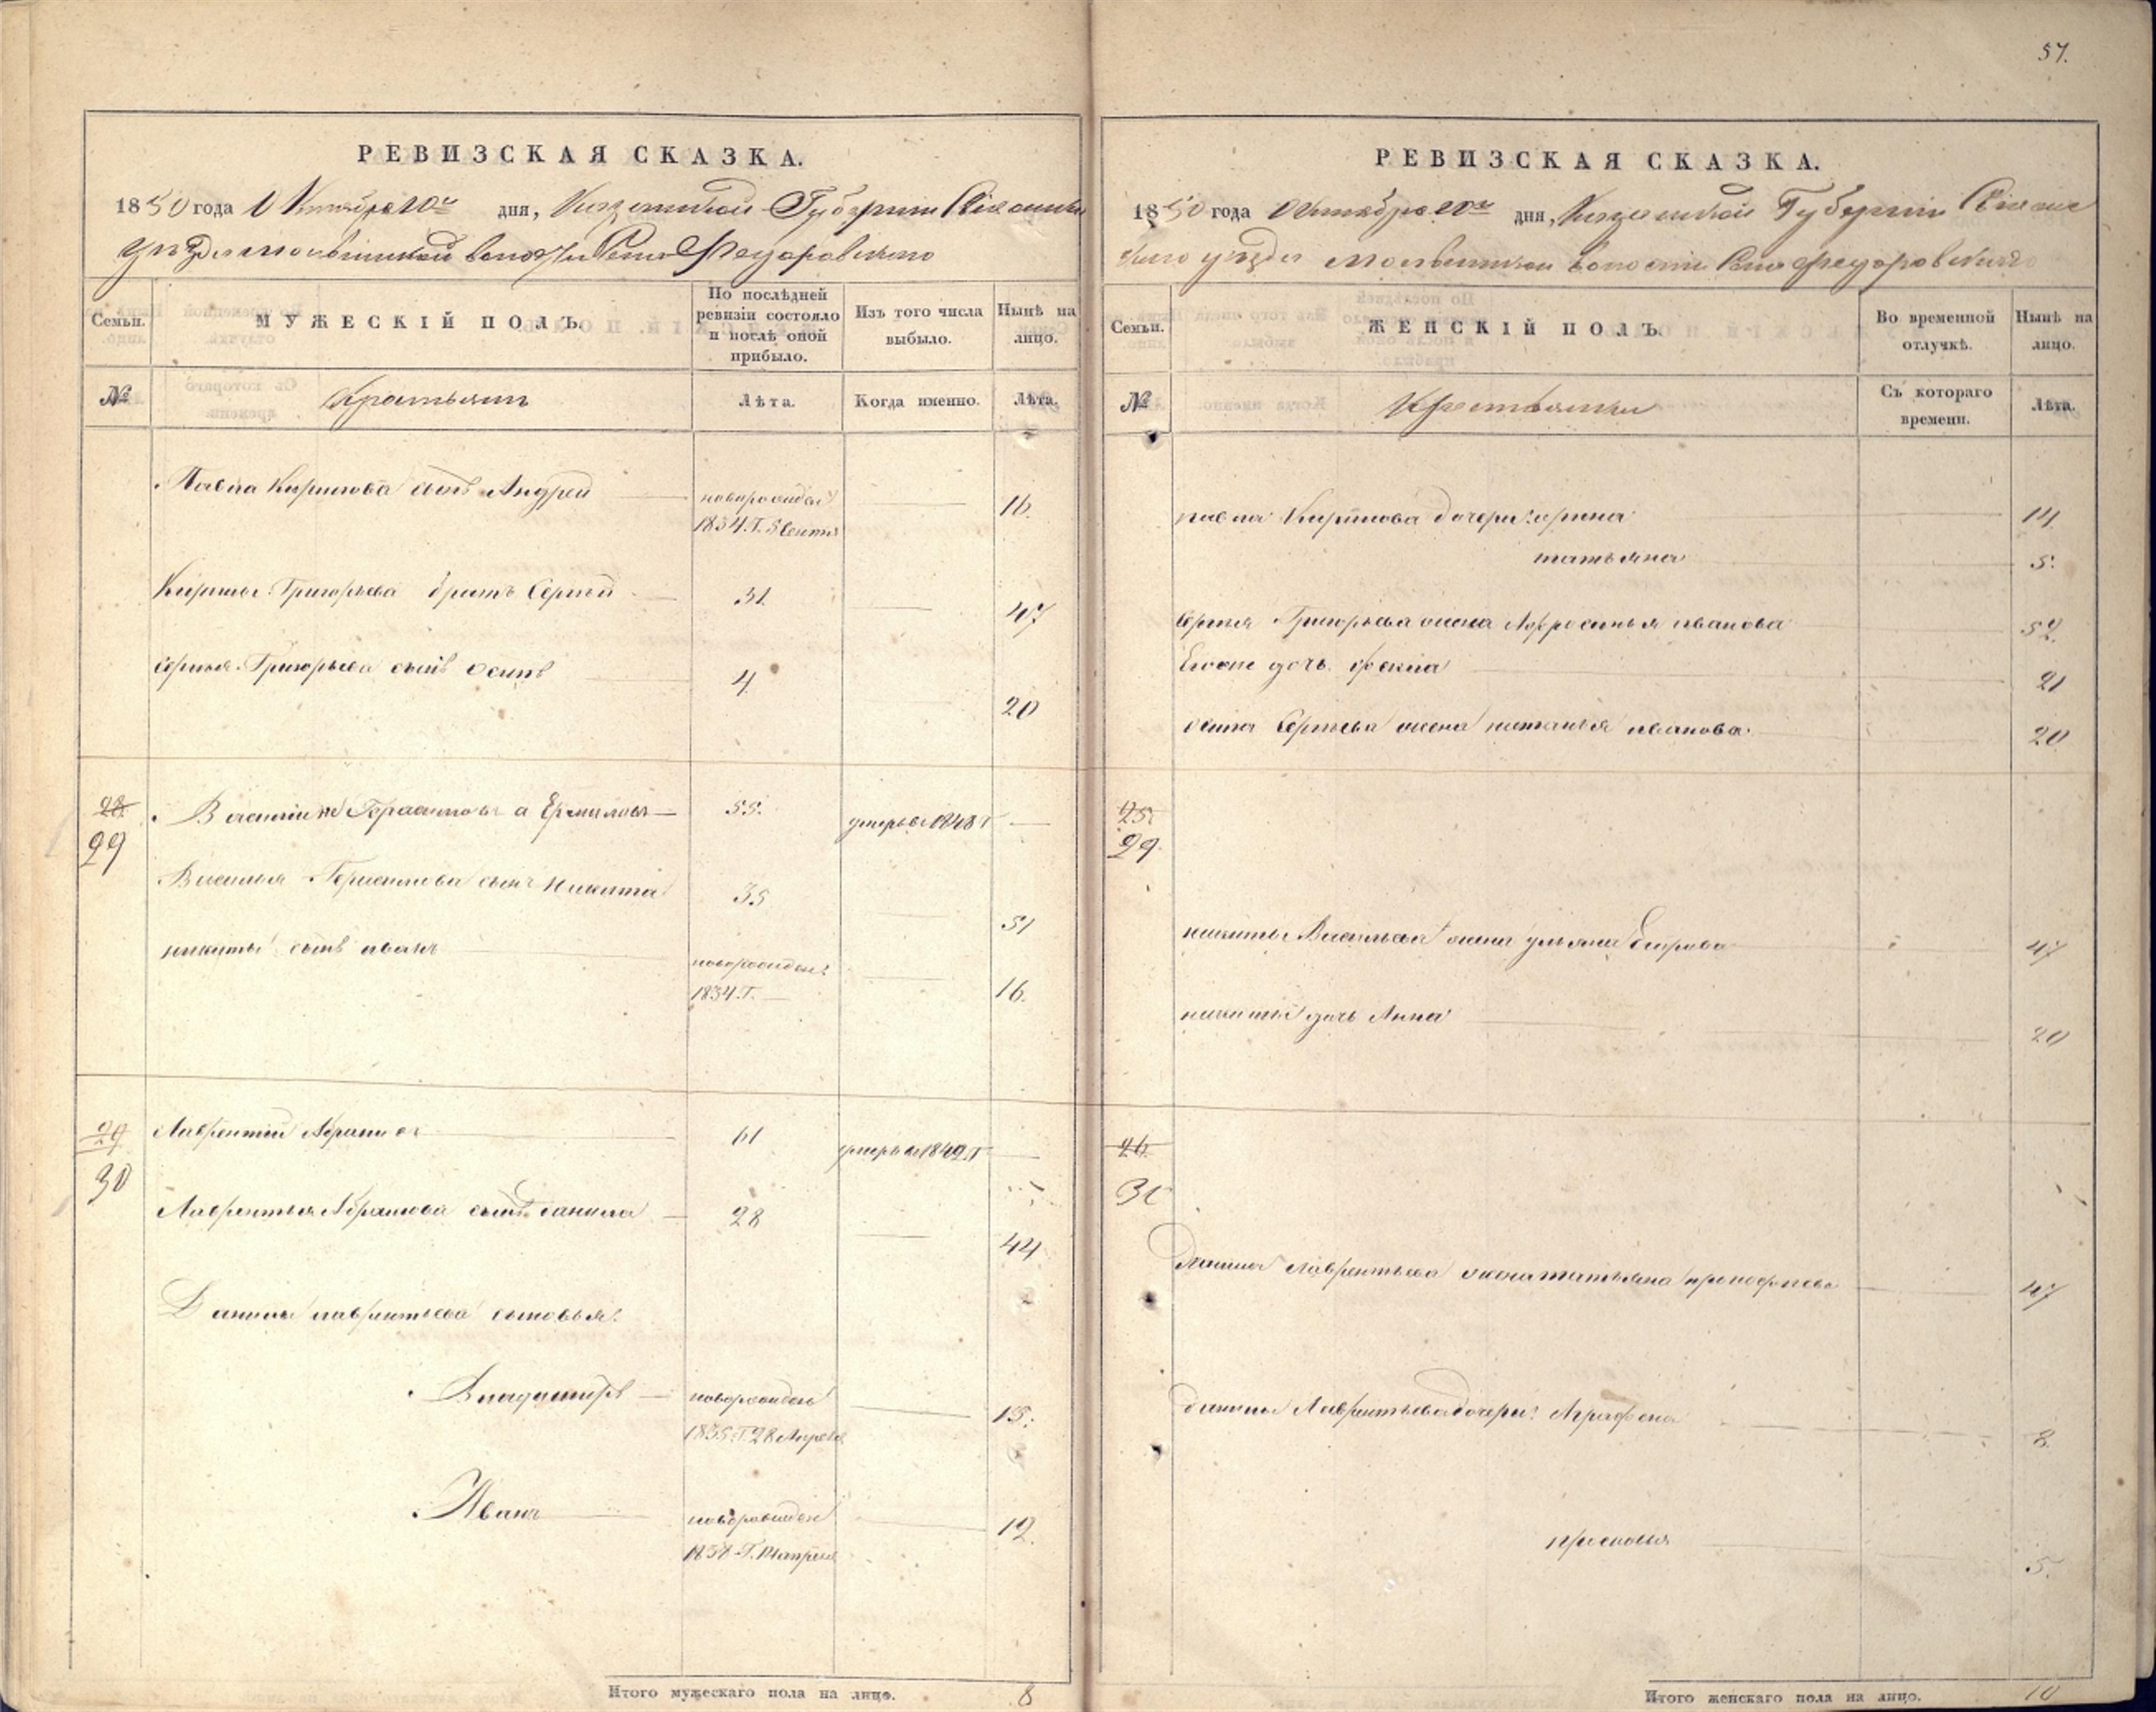 57.
РЕВИЗСКАЯ СКАЗКА.
1850 года Октября 20го дня, Казанской Губернии Свіяжска
уѣзда волости Села Федоровскаго
Семьи.
МУЖЕСКІЙ ПОЛЪ.
По послѣдней ревизіи состояло и послѣ оной прибыло.
Изъ того числа выбыло.
Нынѣ на лицо.
№
Крестьянъ
Лѣта.
Когда именно.
Лѣта.
Павла Кирилова сынъ Андрей
новорожден
16.
1834.Г. 8 Сентя
Кирилы Григорьева братъ Сергей
31.
47
Сергѣя Григорьева сынъ Осипъ
4
20
28.
29
Василий Герасимовъ а Ермиловъ
55.
умеръ в 1848 Г
Василья Герасимова сынъ Никита
35
51
никиты сынъ иванъ
новорожден
1834.Г.
16.
29
30
Лаврентий Абрамовъ
61
умеръ в 1849.Г
Лаврентья Абрамова сынъ данила
28
44
Данилы лаврентьева сыновья:
Владимиръ
новорожден
15:
1835.Г. 28 Апреля
Иванъ
новорожден
12.
1838.Г. апреля
Итого мужескаго пола на лицо.
8
РЕВИЗСКАЯ СКАЗКА.
1850 года Октября 20го дня, Казанской Губернии Свіяжс
каго уѣзда волости Села Федоровскаго
Семьи.
ЖЕНСКІЙ ПОЛЪ.
Во временной отлучкѣ.
Нынѣ на лицо.
№
Крестьянки
Съ котораго времени.
Лѣта.
павла Кирилова дочери: арина
14
татьяна
5.
Сергея Григорьева жена Афросинья иванова
52.
Егоже дочь фекла
21
осипа Сергеева жена наталья иванова
20
25.
29.
никиты Васильева жена ульяна Егорова
47
никиты дочь Анна
20
26.
30
данилы Лаврентьева жена татьяна прокофьева
47
данилы Лаврентьева дочери: Аграфена
8.
прасковья
5.
Итого женскаго пола на лицо.
10